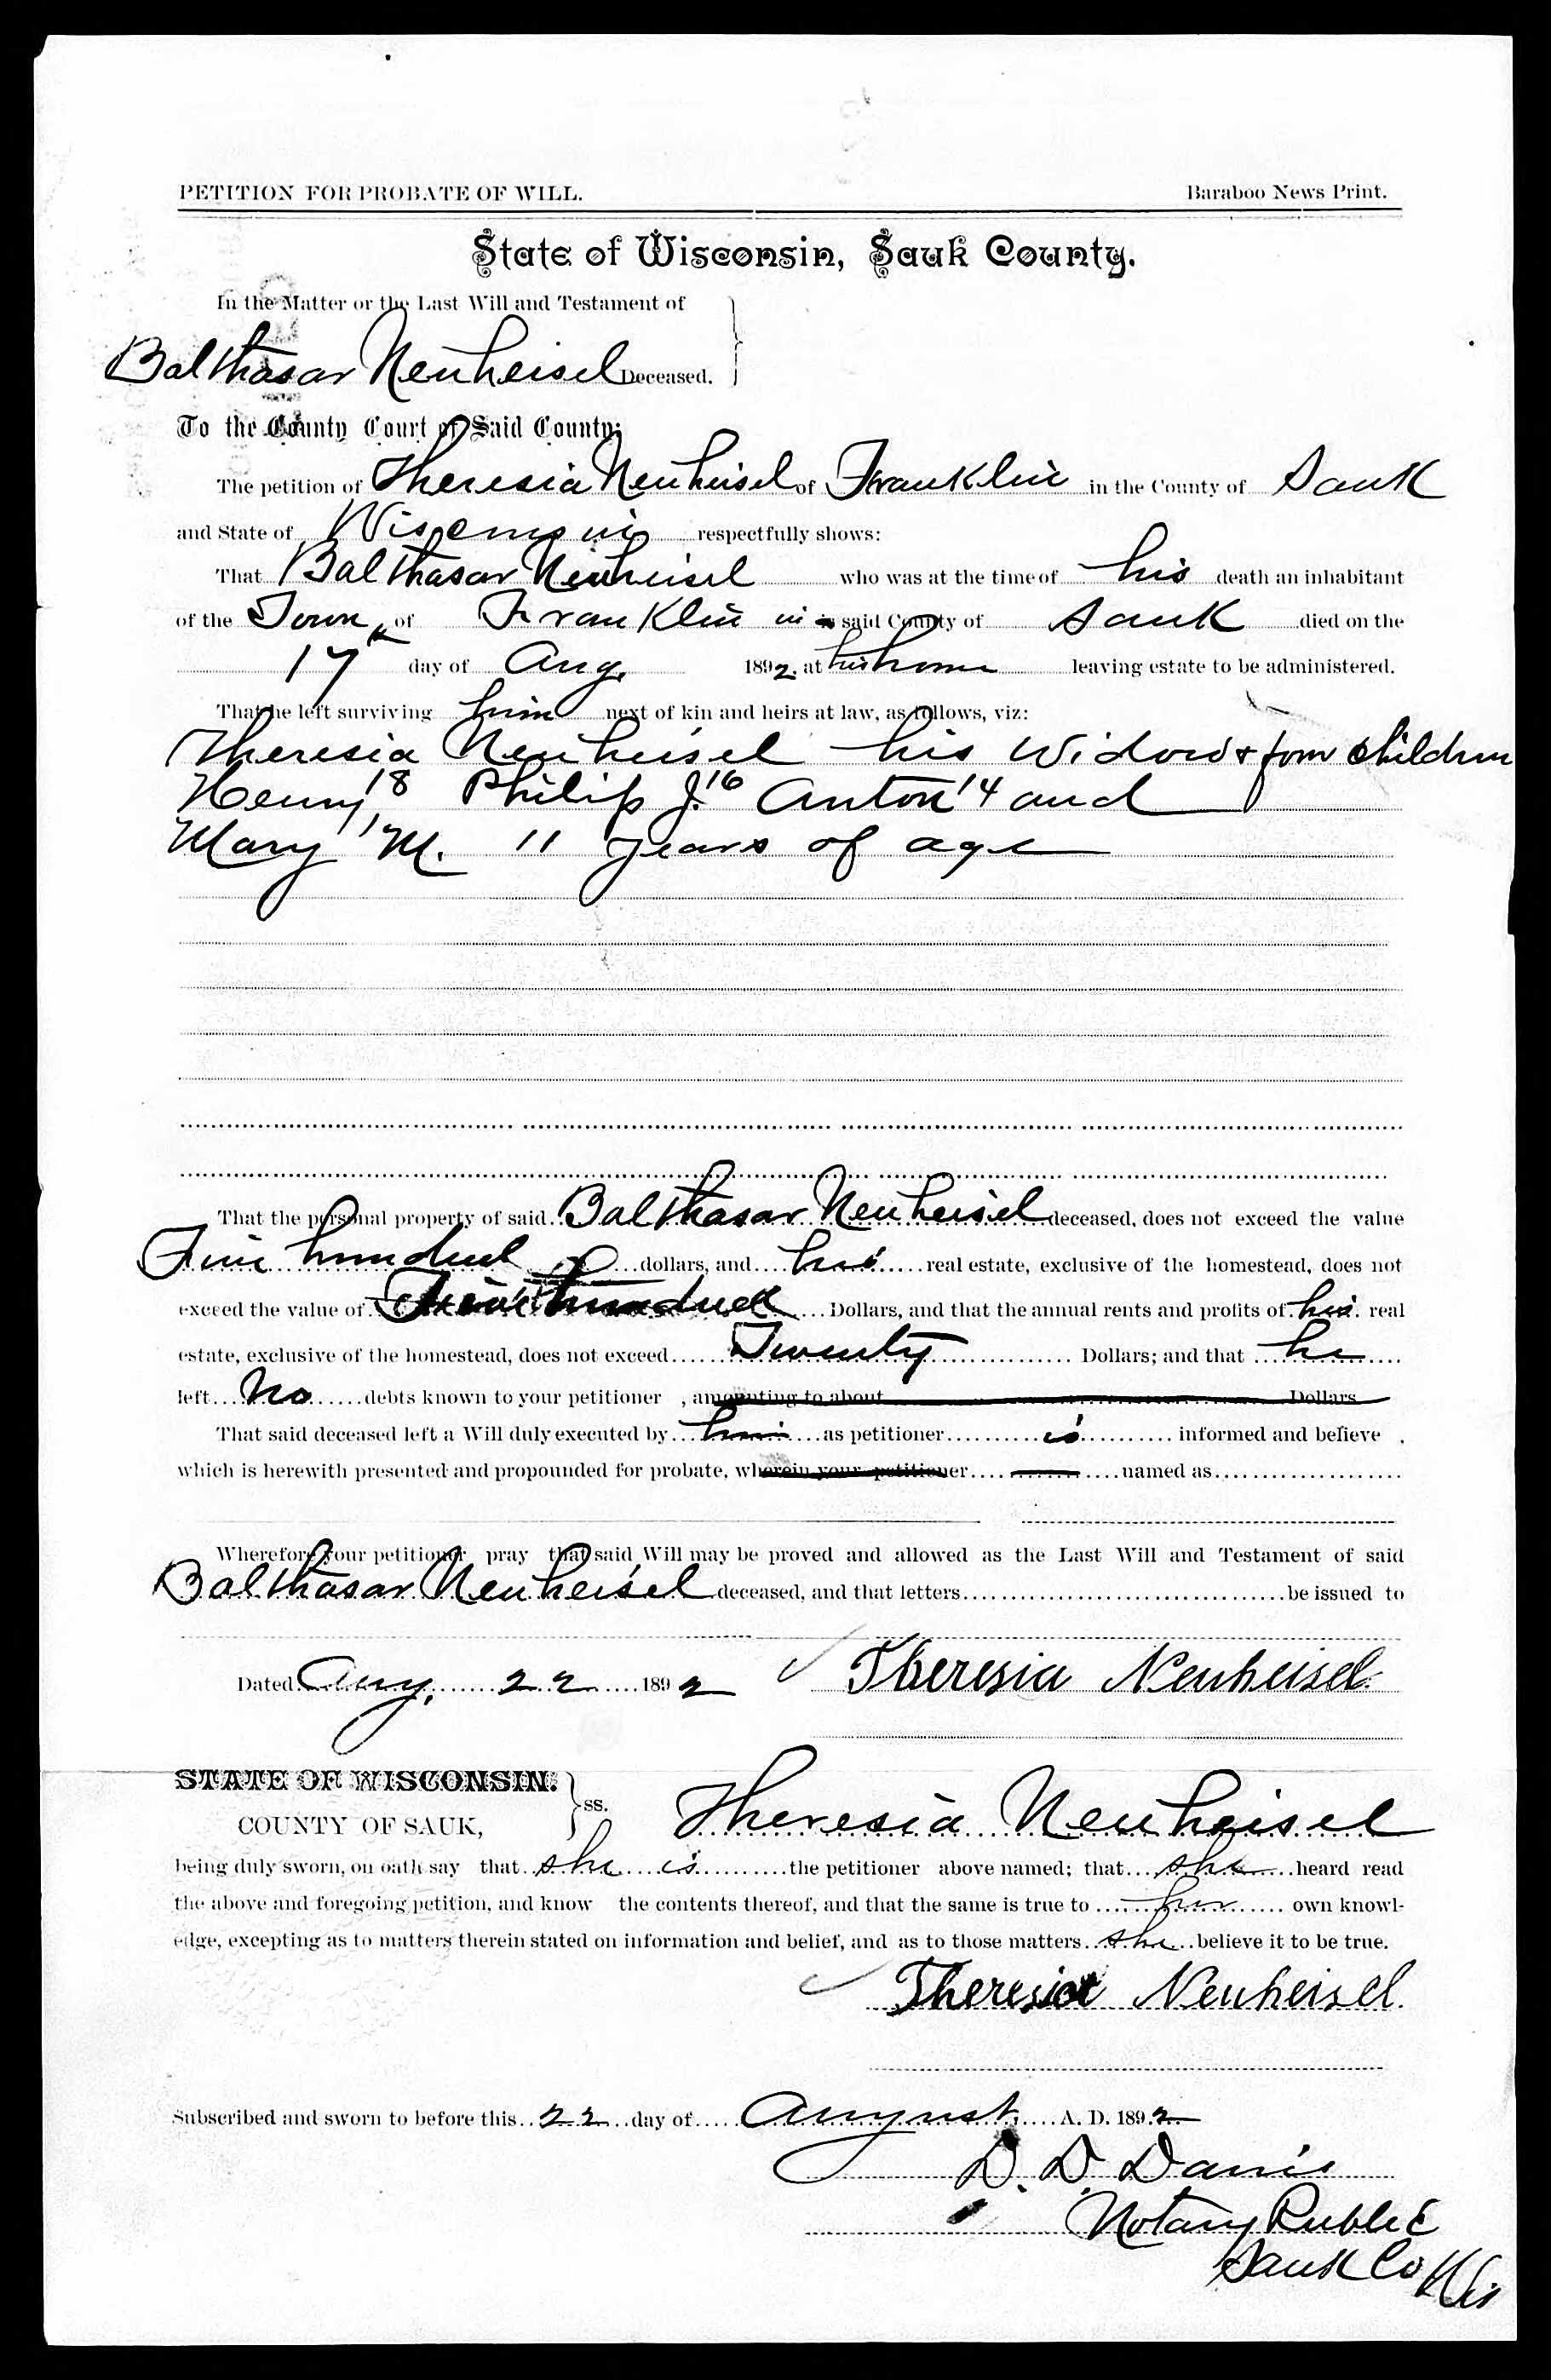 PETITION FOR PROBATE OF WILL. Baraboo News Print.
State of Wisconsin, Sauk County.
In the Matter or the Last Will and Testament of
Balthasar Neuheisel Deceased.
To the County Court of Said County:
The petition of Theresia Neuheisel of Franklin in the County of Sauk
and State of Wisconsin respectfully shows:
That Balthasar Neuheisel who was at the time of his death an inhabitant
of the Town of Franklin in said County of Sauk died on the
17th day of Aug. 1892. at his home leaving estate to be administered.
That he left surviving him next of kin and heirs at law, as follows, viz:
Theresia Neuheisel his Widow & four children
Henry 18 Philip J. 16 Anton 14 and
Mary M. 11 years of age
That the personal property of said Balthasar Neuheisel deceased, does not exceed the value
Five hundred dollars, and his real estate, exclusive of the homestead, does not
exceed the value of hundred Dollars, and that the annual rents and profits of his real
estate, exclusive of the homestead, does not exceed Twenty Dollars; and that he
left no debts known to your petitioner , amounting to about Dollars
That said deceased left a Will duly executed by him as petitioner is informed and believe ,
which is herewith presented and propounded for probate, wherein your petitioner named as
Wherefore your petitioner pray that said Will may be proved and allowed as the Last Will and Testament of said
Balthasar Neuheisel deceased, and that letters be issued to
Dated Aug. 22 1892 Theresia Neuheisel
STATE OF WISCONSIN.
COUNTY OF SAUK, ss. Theresia Neuheisel
being duly sworn, on oath say that she is the petitioner above named; that she heard read
the above and foregoing petition, and know the contents thereof, and that the same is true to her own knowl-
edge, excepting as to matters therein stated on information and belief, and as to those matters she believe it to be true.
Theresia Neuheisel.
Subscribed and sworn to before this 22 day of August, A. D. 1892
D. D. Davis
Notary Public
Sauk Co Wis